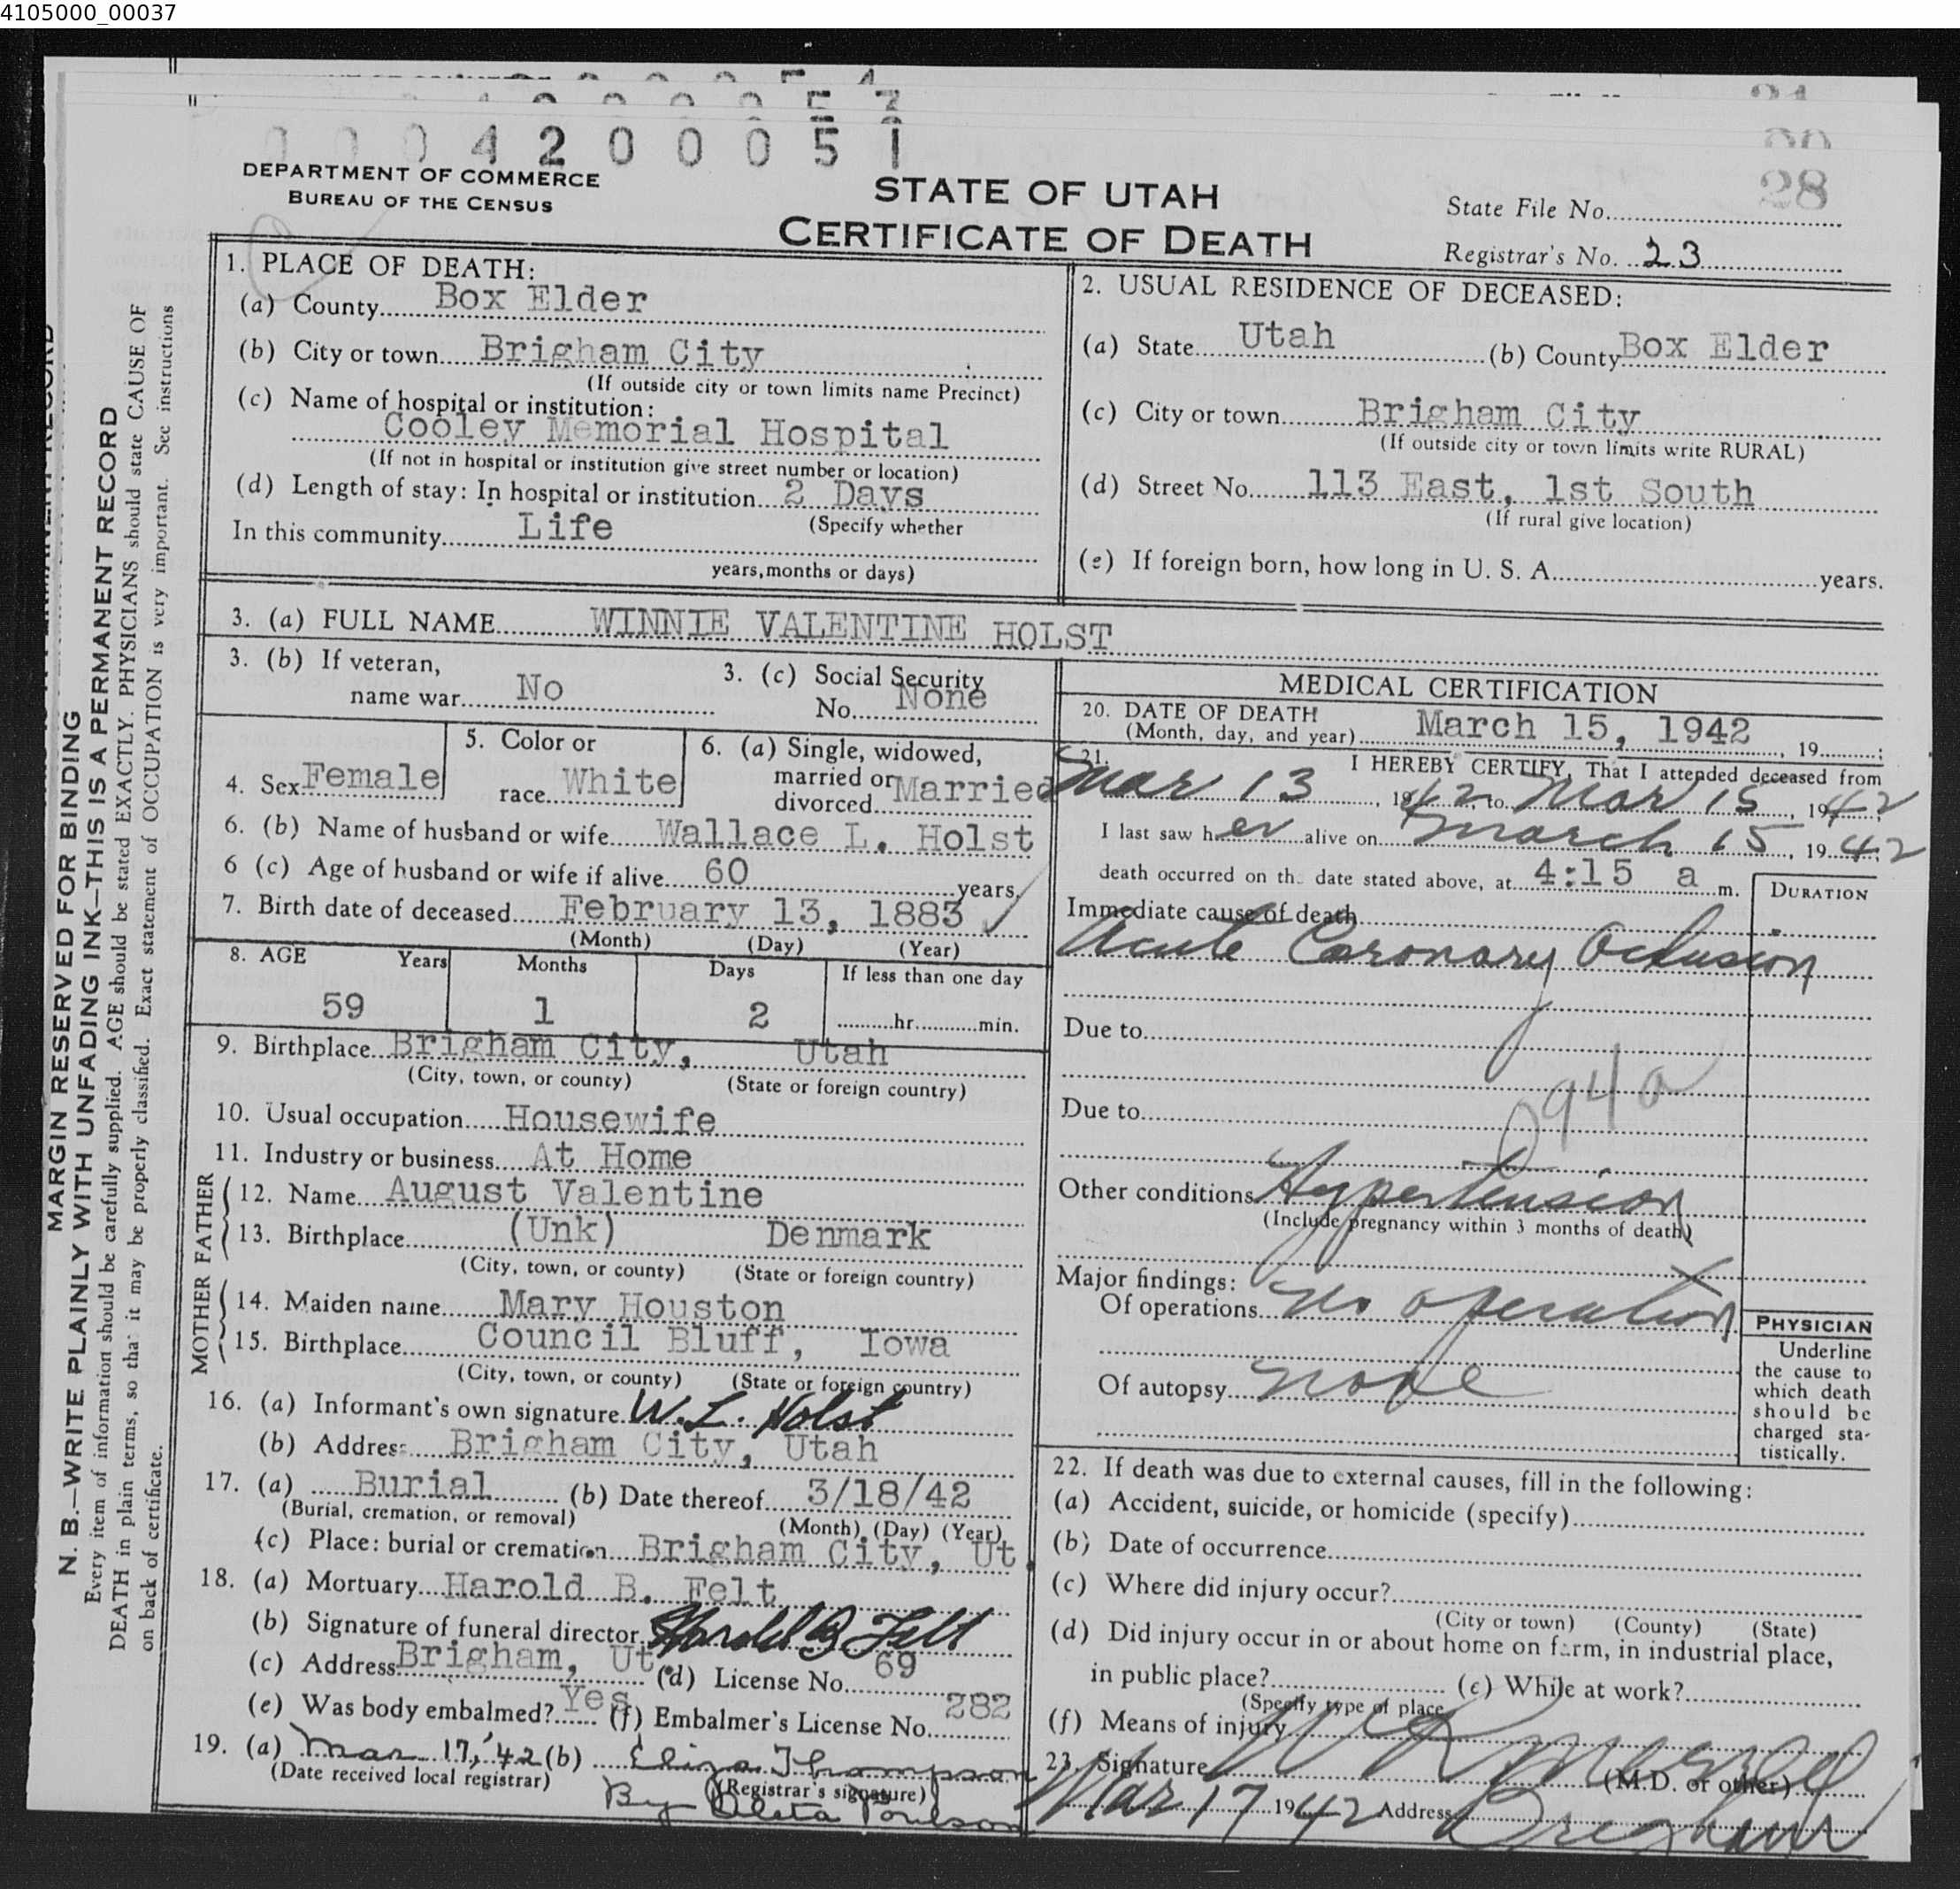 4105000_00037
0004200051
28
DEPARTMENT OF COMMERCE
BUREAU OF THE CENSUS
STATE OF UTAH
CERTIFICATE OF DEATH
State File No.
Registrar's No. 23
MARGIN RESERVED FOR BINDING
N. B.—WRITE PLAINLY WITH UNFADING INK—THIS IS A PERMANENT RECORD
Every item of information should be carefully supplied. AGE should be stated EXACTLY. PHYSICIANS should state CAUSE OF
DEATH in plain terms, so that it may be properly classified. Exact statement of OCCUPATION is very important. See instructions
on back of certificate.
1. PLACE OF DEATH:
(a) County Box Elder
(b) City or town Brigham City
(If outside city or town limits name Precinct)
(c) Name of hospital or institution:
Cooley Memorial Hospital
(If not in hospital or institution give street number or location)
(d) Length of stay: In hospital or institution 2 Days
In this community Life (Specify whether
years, months or days)
2. USUAL RESIDENCE OF DECEASED:
(a) State Utah (b) County Box Elder
(c) City or town Brigham City
(If outside city or town limits write RURAL)
(d) Street No. 113 East, 1st South
(If rural give location)
(e) If foreign born, how long in U. S. A. years.
3. (a) FULL NAME WINNIE VALENTINE HOLST
3. (b) If veteran,
name war No
3. (c) Social Security
No. None
4. Sex Female
5. Color or
race White
6. (a) Single, widowed,
married or
divorced Married
6. (b) Name of husband or wife Wallace L. Holst
6 (c) Age of husband or wife if alive 60 years
7. Birth date of deceased February 13, 1883
(Month) (Day) (Year)
8. AGE Years Months Days If less than one day
59 1 2 hr. min.
9. Birthplace Brigham City, Utah
(City, town, or county) (State or foreign country)
10. Usual occupation Housewife
11. Industry or business At Home
FATHER
12. Name August Valentine
13. Birthplace (Unk) Denmark
(City, town, or county) (State or foreign country)
MOTHER
14. Maiden name Mary Houston
15. Birthplace Council Bluff, Iowa
(City, town, or county) (State or foreign country)
16. (a) Informant's own signature W. L. Holst
(b) Address Brigham City, Utah
17. (a) Burial (b) Date thereof 3/18/42
(Burial, cremation, or removal) (Month) (Day) (Year)
(c) Place: burial or cremation Brigham City, Ut.
18. (a) Mortuary Harold B. Felt
(b) Signature of funeral director Harold B Felt
(c) Address Brigham, Ut. (d) License No. 69
(e) Was body embalmed? Yes (f) Embalmer's License No. 282
19. (a) Mar 17, '42 (b) Eliza Thompson
(Date received local registrar) (Registrar's signature)
By Aleta Poulson
MEDICAL CERTIFICATION
20. DATE OF DEATH
(Month, day, and year) March 15, 1942, 19
21. I HEREBY CERTIFY, That I attended deceased from
Mar 13, 1942 to Mar 15, 1942
I last saw her alive on March 15, 1942
death occurred on the date stated above, at 4:15 a m.
DURATION
Immediate cause of death
Acute Coronary Oclusion
Due to
094a
Due to
Other conditions Hypertension
(Include pregnancy within 3 months of death)
Major findings:
Of operations no operation
Of autopsy none
PHYSICIAN
Underline
the cause to
which death
should be
charged sta-
tistically.
22. If death was due to external causes, fill in the following:
(a) Accident, suicide, or homicide (specify)
(b) Date of occurrence
(c) Where did injury occur?
(City or town) (County) (State)
(d) Did injury occur in or about home on farm, in industrial place,
in public place? (e) While at work?
(Specify type of place
(f) Means of injury
23. Signature W R (M.D. or other)
Mar 17 1942 Address Brigham